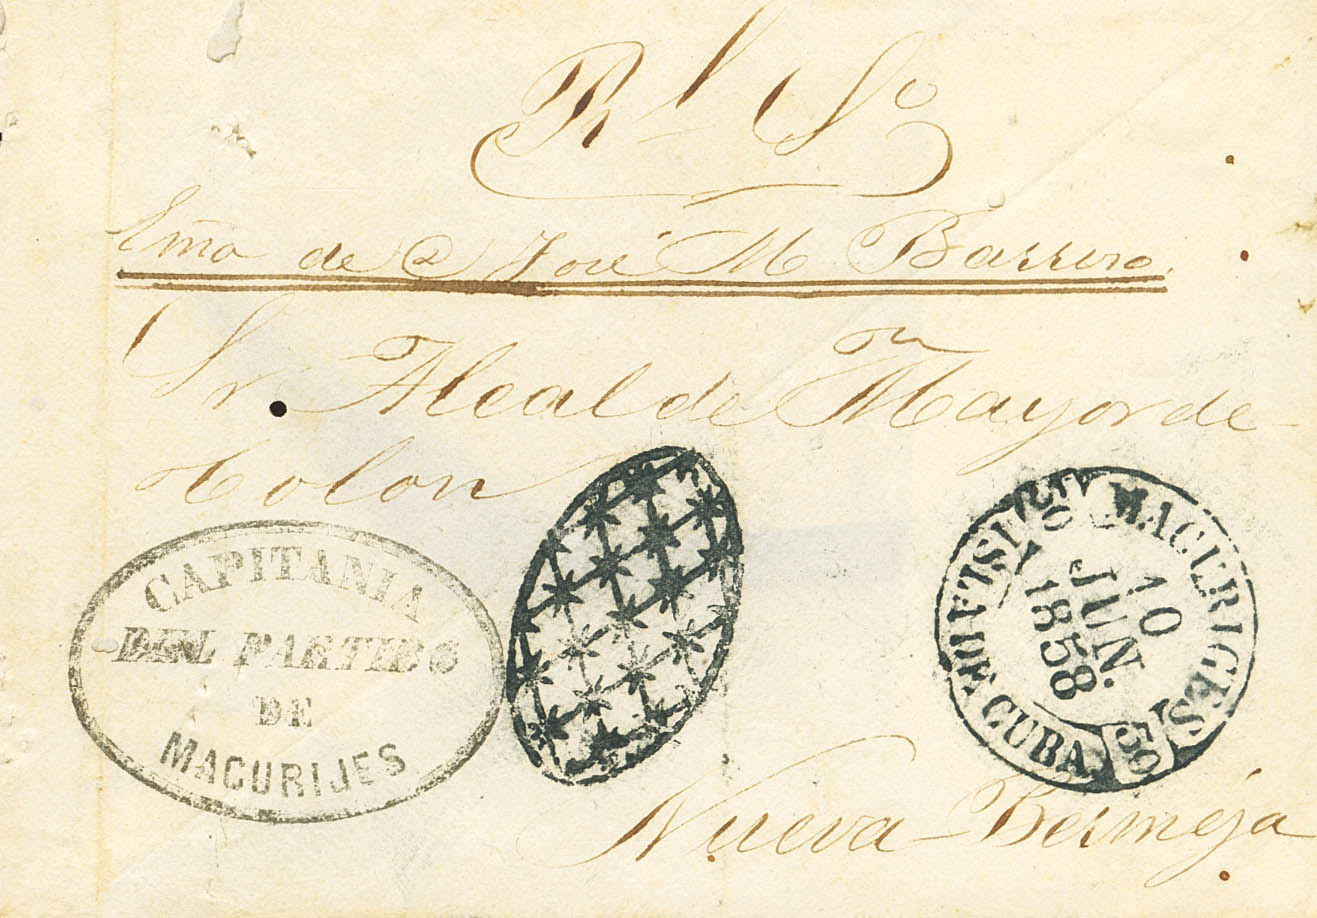 Rl So
de D José M Barrero
Sr Alcalde Mayor de
Colon
CAPITANIA
DEL PARTIDO
DE
MACURIJES
MACURIGES
10
JUN.
1858
50
ISLA DE CUBA
Nueva Bermeja